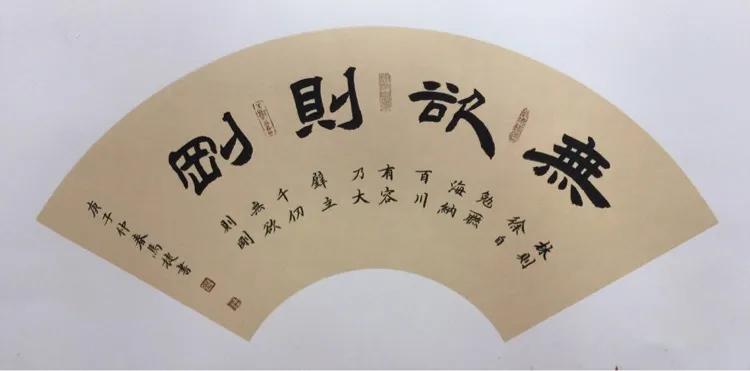 無欲則剛
林則
徐自
勉聯
海納
百川
有容
乃大
壁立
千仞
无欲
則剛
庚子仲春馬書